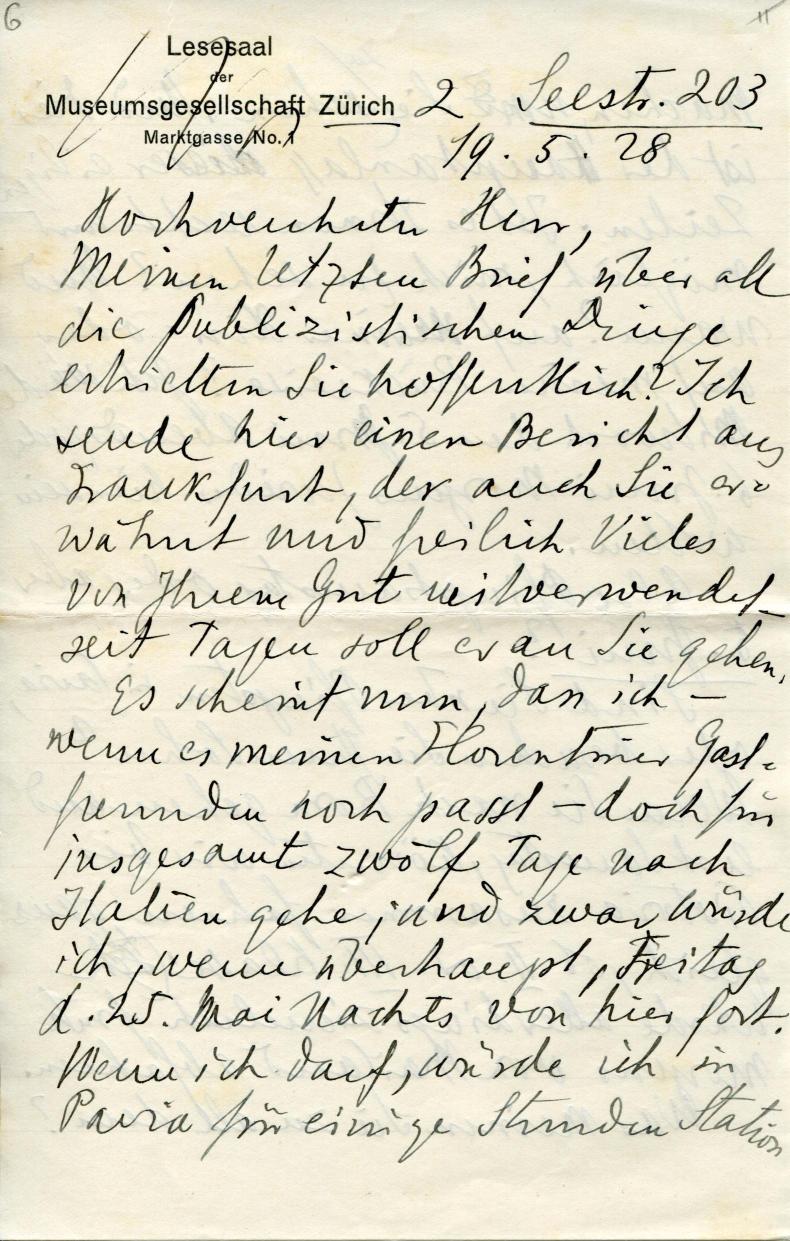 6
11
Lesesaal
der
Museumsgesellschaft Zürich 2 Seestr. 203
Marktgasse No. 1
19. 5. 28
Hochverehrter Herr,
Meinen letzten Brief über all
die Publizistischen Dinge
erhielten Sie hoffentlich? Ich
sende hier einen Bericht aus
Frankfurt, der auch Sie er=
wähnt und freilich Vieles
von Ihrem Gut mitverwendet
seit Tagen soll er an Sie gehen.
Es scheint nun, dass ich —
wenn es meinen Florentiner Gast=
freunden noch passt — doch für
insgesamt zwölf Tage nach
Italien gehe; und zwar würde
ich, wenn überhaupt, Freitag
d. 25. Mai Nachts von hier fort.
Wenn ich darf, würde ich in
Pavia für einige Stunden Station